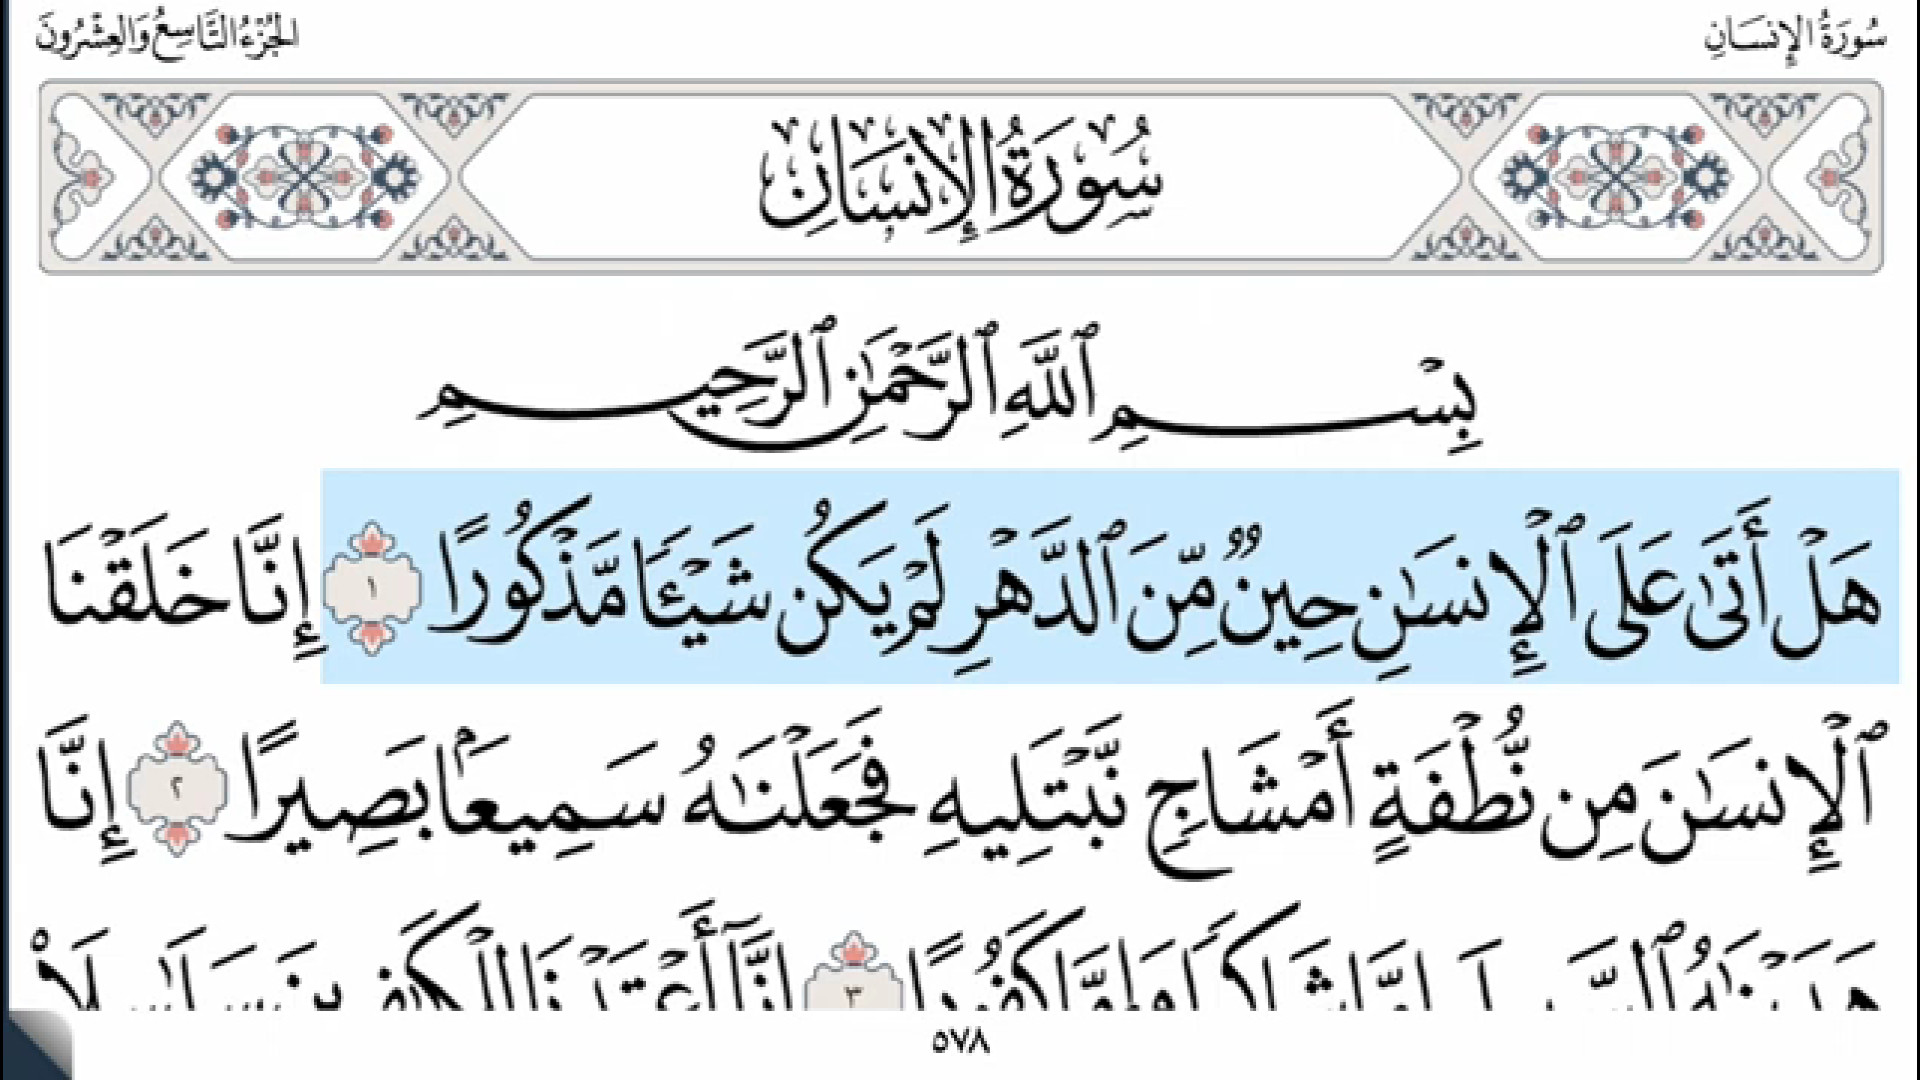 سُورَةُ الإِنسَانِ
الجُزْءُ التَّاسِعُ وَالعِشْرُونَ
سُورَةُ الإِنسَانِ
بِسْمِ ٱللَّهِ ٱلرَّحْمَٰنِ ٱلرَّحِيمِ
هَلْ أَتَىٰ عَلَى ٱلْإِنسَٰنِ حِينٌ مِّنَ ٱلدَّهْرِ لَمْ يَكُن شَيْـًٔا مَّذْكُورًا ١ إِنَّا خَلَقْنَا
ٱلْإِنسَٰنَ مِن نُّطْفَةٍ أَمْشَاجٍ نَّبْتَلِيهِ فَجَعَلْنَٰهُ سَمِيعًۢا بَصِيرًا ٢ إِنَّا
هَدَيْنَٰهُ ٱلسَّبِيلَ إِمَّا شَاكِرًا وَإِمَّا كَفُورًا ٣ إِنَّآ أَعْتَدْنَا لِلْكَٰفِرِينَ سَلَٰسِلَا۟
٥٧٨